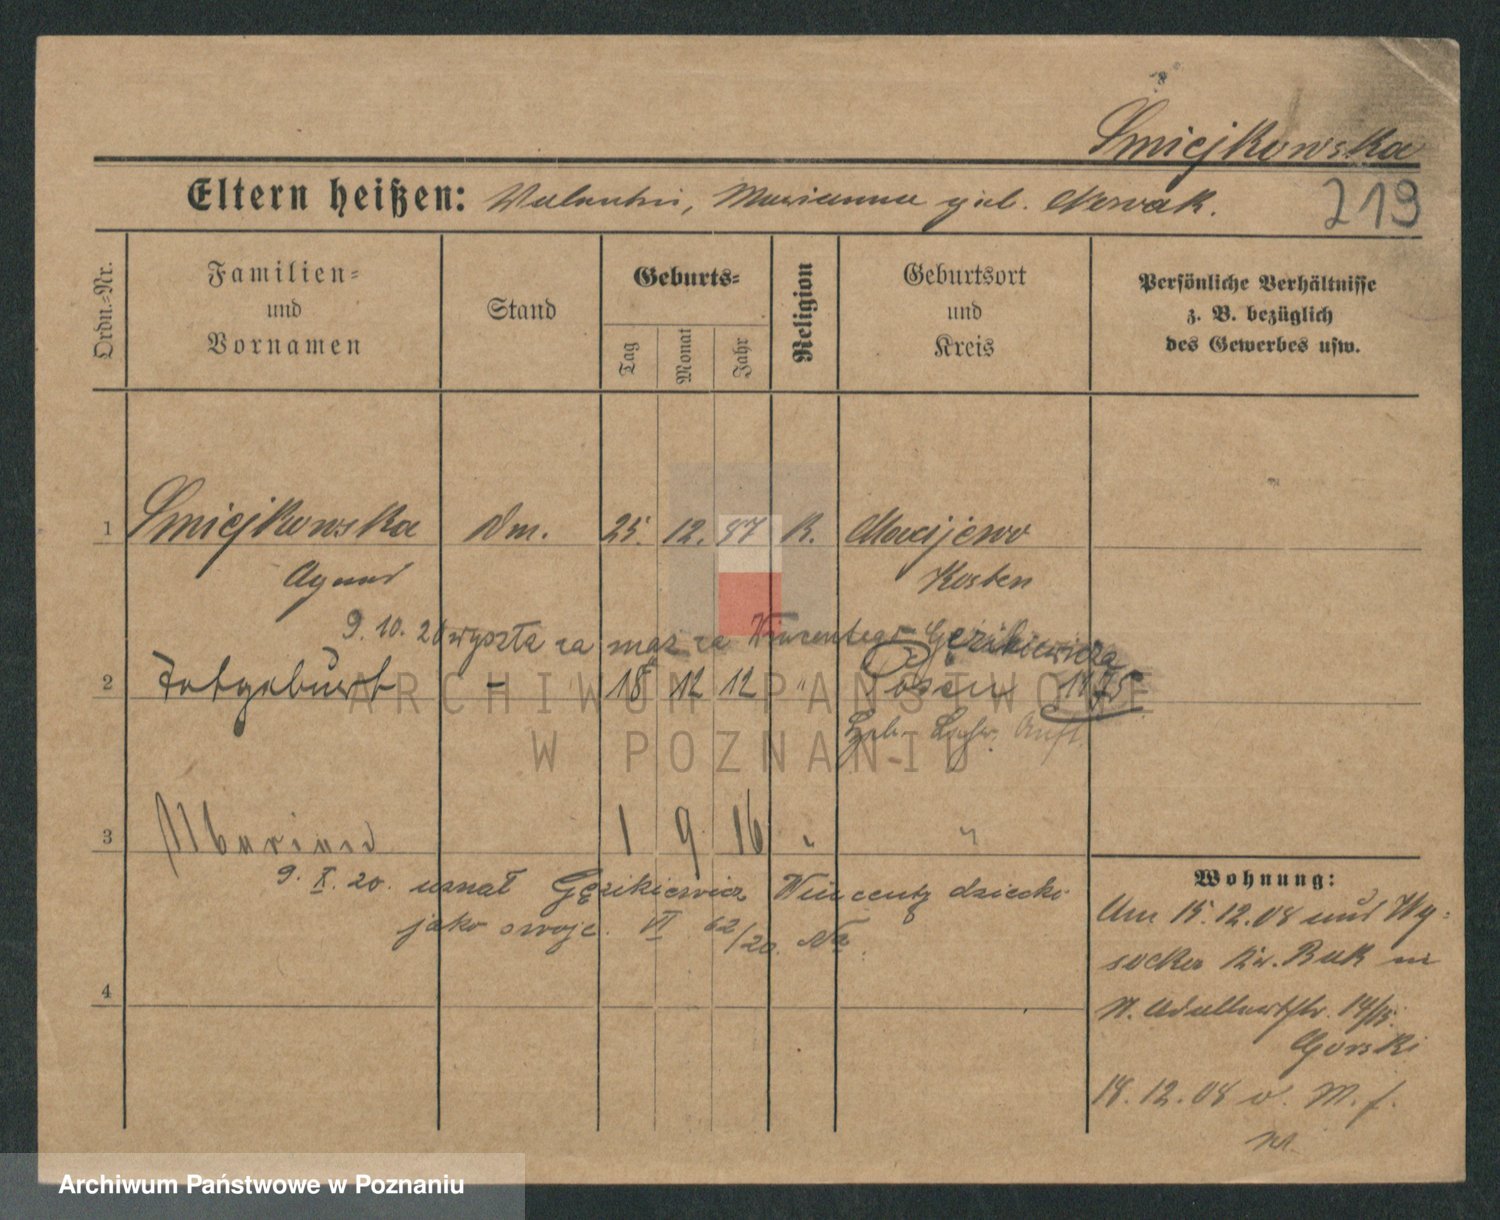 Smiejkowska
219
Eltern heißen: Valentin, Marianna geb. Nowak.
Ordn.=Nr.
Familien=
und
Vornamen
Stand
Geburts=
Tag
Monat
Jahr
Religion
Geburtsort
und
Kreis
Persönliche Verhältnisse
z. B. bezüglich
des Gewerbes usw.
1 Smiejkowska Dm. 25. 12. 87 K. Maciejewo
Agnes Kosten
9. 10. 20 wyszła za mąż za Wincentego Gęzikiewicza
2 Totgeburt - 18 12 12 " Posen 1875
Heb. Aust.
3 Marian 1 9 16 " "
9. X. 20. uznał Gęzikiewicz Wincenty dziecko
jako swoje. VI 62/20 Na.
4
Wohnung:
Am 15.12.08 aus Wy=
socka Kr. Buk n.
St. Adalbertstr. 14/15.
Gorski
18.12.08 v. M. f.
ARCHIWUM PAŃSTWOWE
W POZNANIU
Archiwum Państwowe w Poznaniu